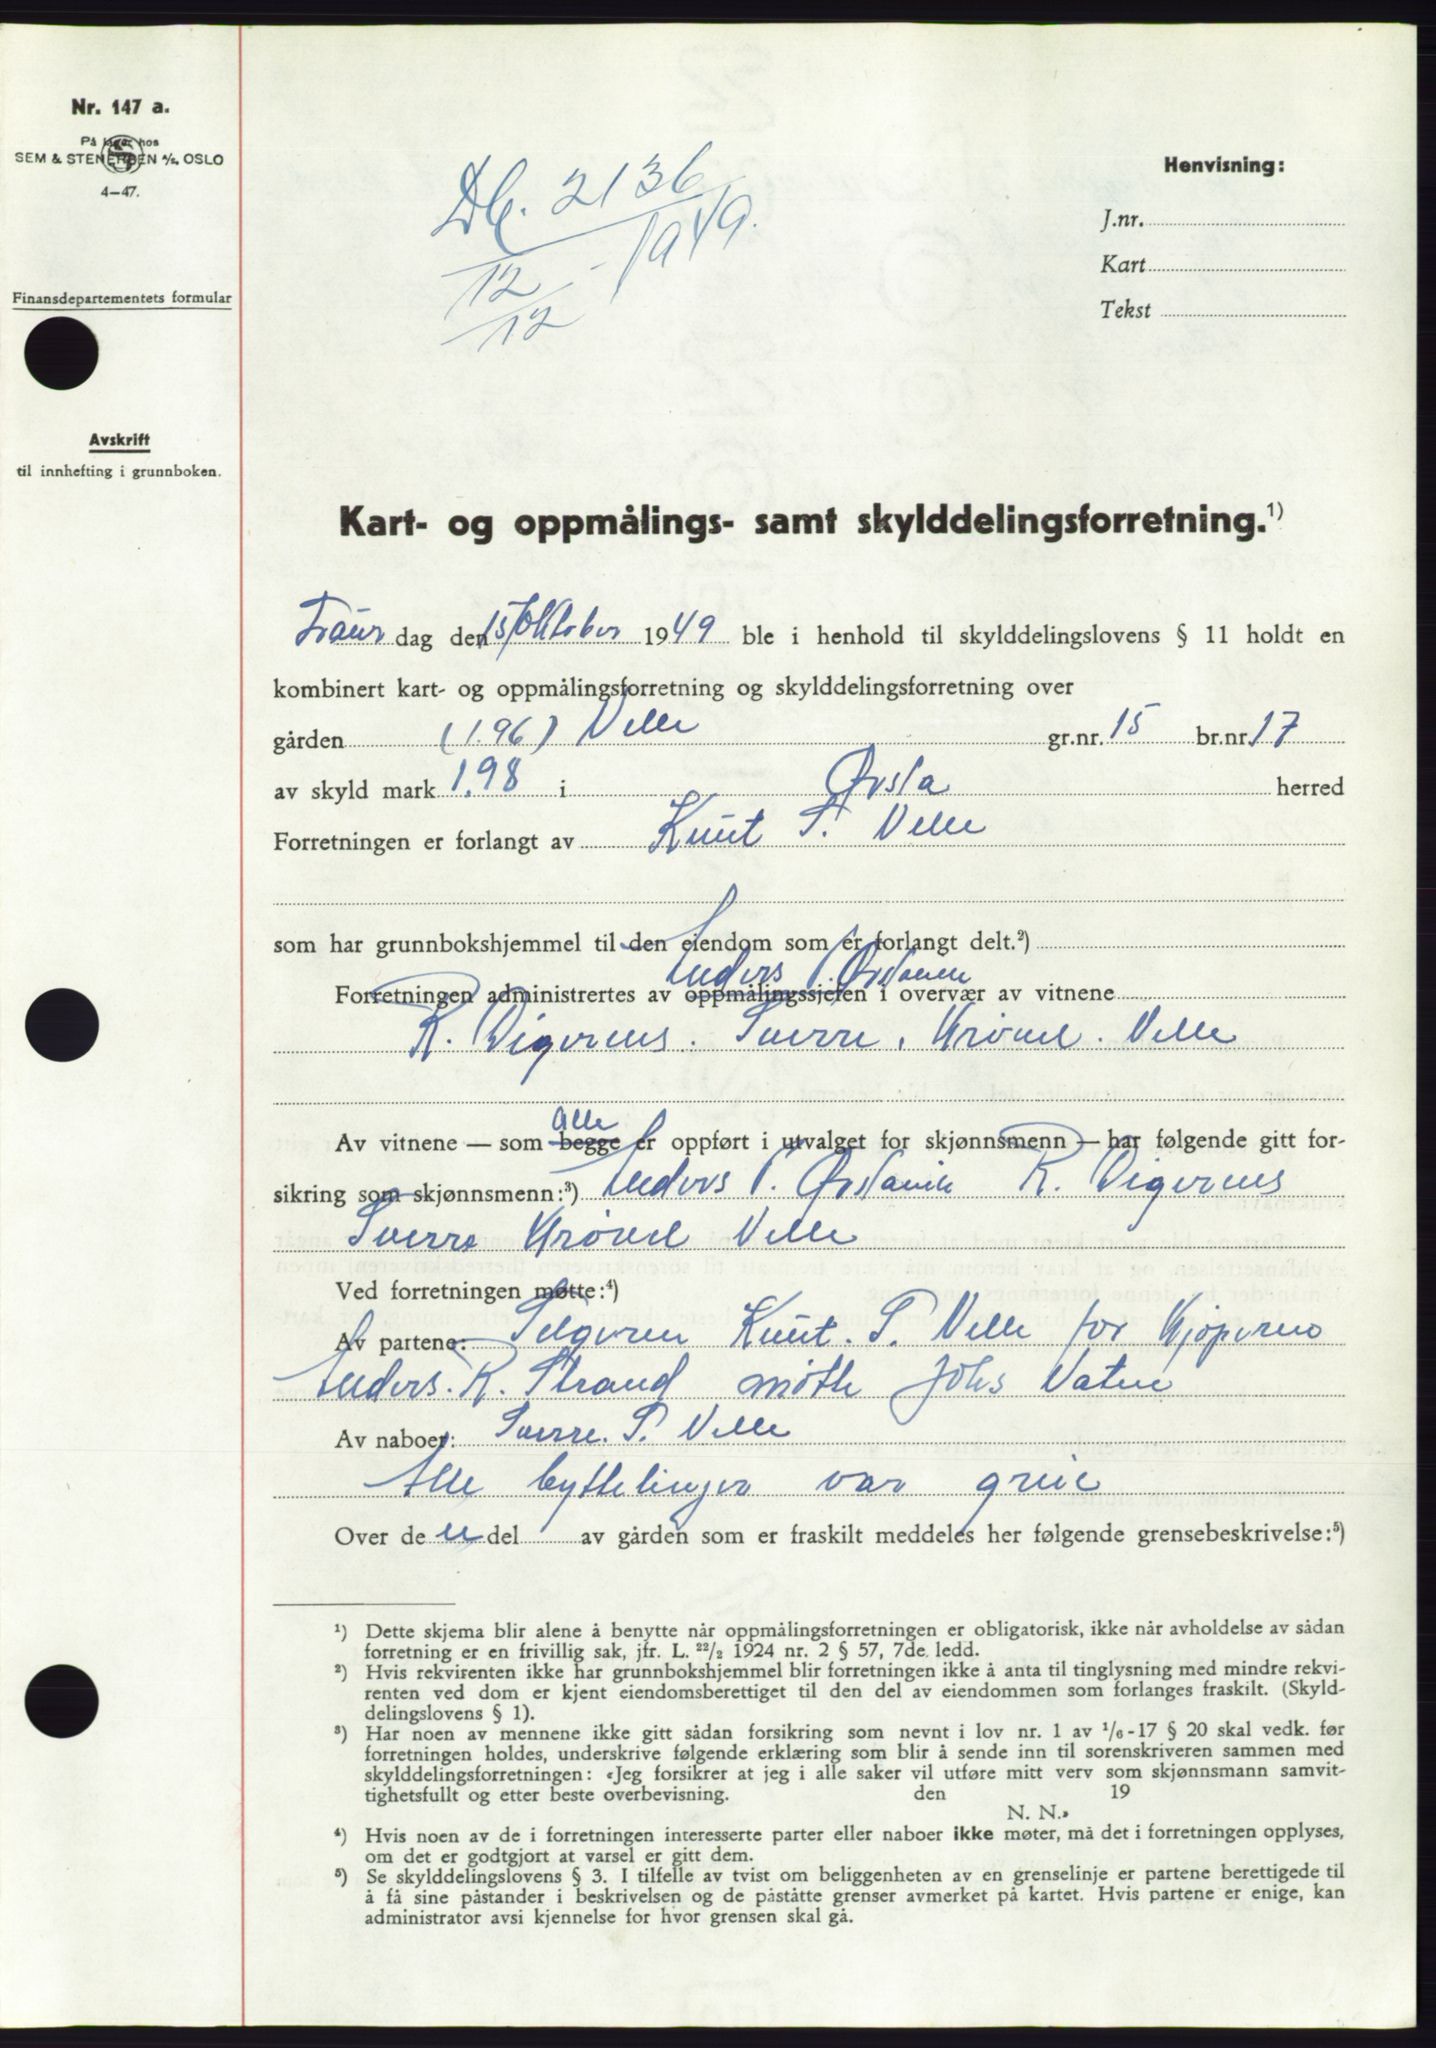 Nr. 147 a.
På lager hos
SEM & STENERSEN A/S, OSLO
4—47.
Finansdepartementets formular
Avskrift
til innhefting i grunnboken.
Db. 2136
12/12 - 1949.
Henvisning:
J.nr.
Kart
Tekst
Kart- og oppmålings- samt skylddelingsforretning.¹)
dag den 15/Oktober 1949 ble i henhold til skylddelingslovens § 11 holdt en
kombinert kart- og oppmålingsforretning og skylddelingsforretning over
gården (1.96) Velle gr.nr. 15 br.nr. 17
av skyld mark 1.98 i Ørsta herred
Forretningen er forlangt av Knut S. Velle
som har grunnbokshjemmel til den eiendom som er forlangt delt.²)
Anders P. Ørstavik
Forretningen administrertes av oppmålingssjefen i overvær av vitnene
R. Digernes. Sverre. Krøvel. Velle
alle
Av vitnene — som begge er oppført i utvalget for skjønnsmenn — har følgende gitt for-
sikring som skjønnsmenn:³) Anders P. Ørstavik R. Digernes
Sverre Krøvel Velle
Ved forretningen møtte:⁴)
Av partene: Selgeren Knut. S. Velle for Kjøperens
Anders. R. Strand møtte Johs Vatne
Av naboer: Sverre. S. Velle
Alle byttelinjer var greie
Over de n del av gården som er fraskilt meddeles her følgende grensebeskrivelse:⁵)
¹) Dette skjema blir alene å benytte når oppmålingsforretningen er obligatorisk, ikke når avholdelse av sådan
forretning er en frivillig sak, jfr. L. 22/2 1924 nr. 2 § 57, 7de. ledd.
²) Hvis rekvirenten ikke har grunnbokshjemmel blir forretningen ikke å anta til tinglysning med mindre rekvi-
renten ved dom er kjent eiendomsberettiget til den del av eiendommen som forlanges fraskilt. (Skyld-
delingslovens § 1).
³) Har noen av mennene ikke gitt sådan forsikring som nevnt i lov nr. 1 av 1/6-17 § 20 skal vedk. før
forretningen holdes, underskrive følgende erklæring som blir å sende inn til sorenskriveren sammen med
skylddelingsforretningen: «Jeg forsikrer at jeg i alle saker vil utføre mitt verv som skjønnsmann samvit-
tighetsfullt og etter beste overbevisning. den 19
N. N.»
⁴) Hvis noen av de i forretningen interesserte parter eller naboer ikke møter, må det i forretningen opplyses,
om det er godtgjort at varsel er gitt dem.
⁵) Se skylddelingslovens § 3. I tilfelle av tvist om beliggenheten av en grenselinje er partene berettigede til
å få sine påstander i beskrivelsen og de påståtte grenser avmerket på kartet. Hvis partene er enige, kan
administrator avsi kjennelse for hvor grensen skal gå.